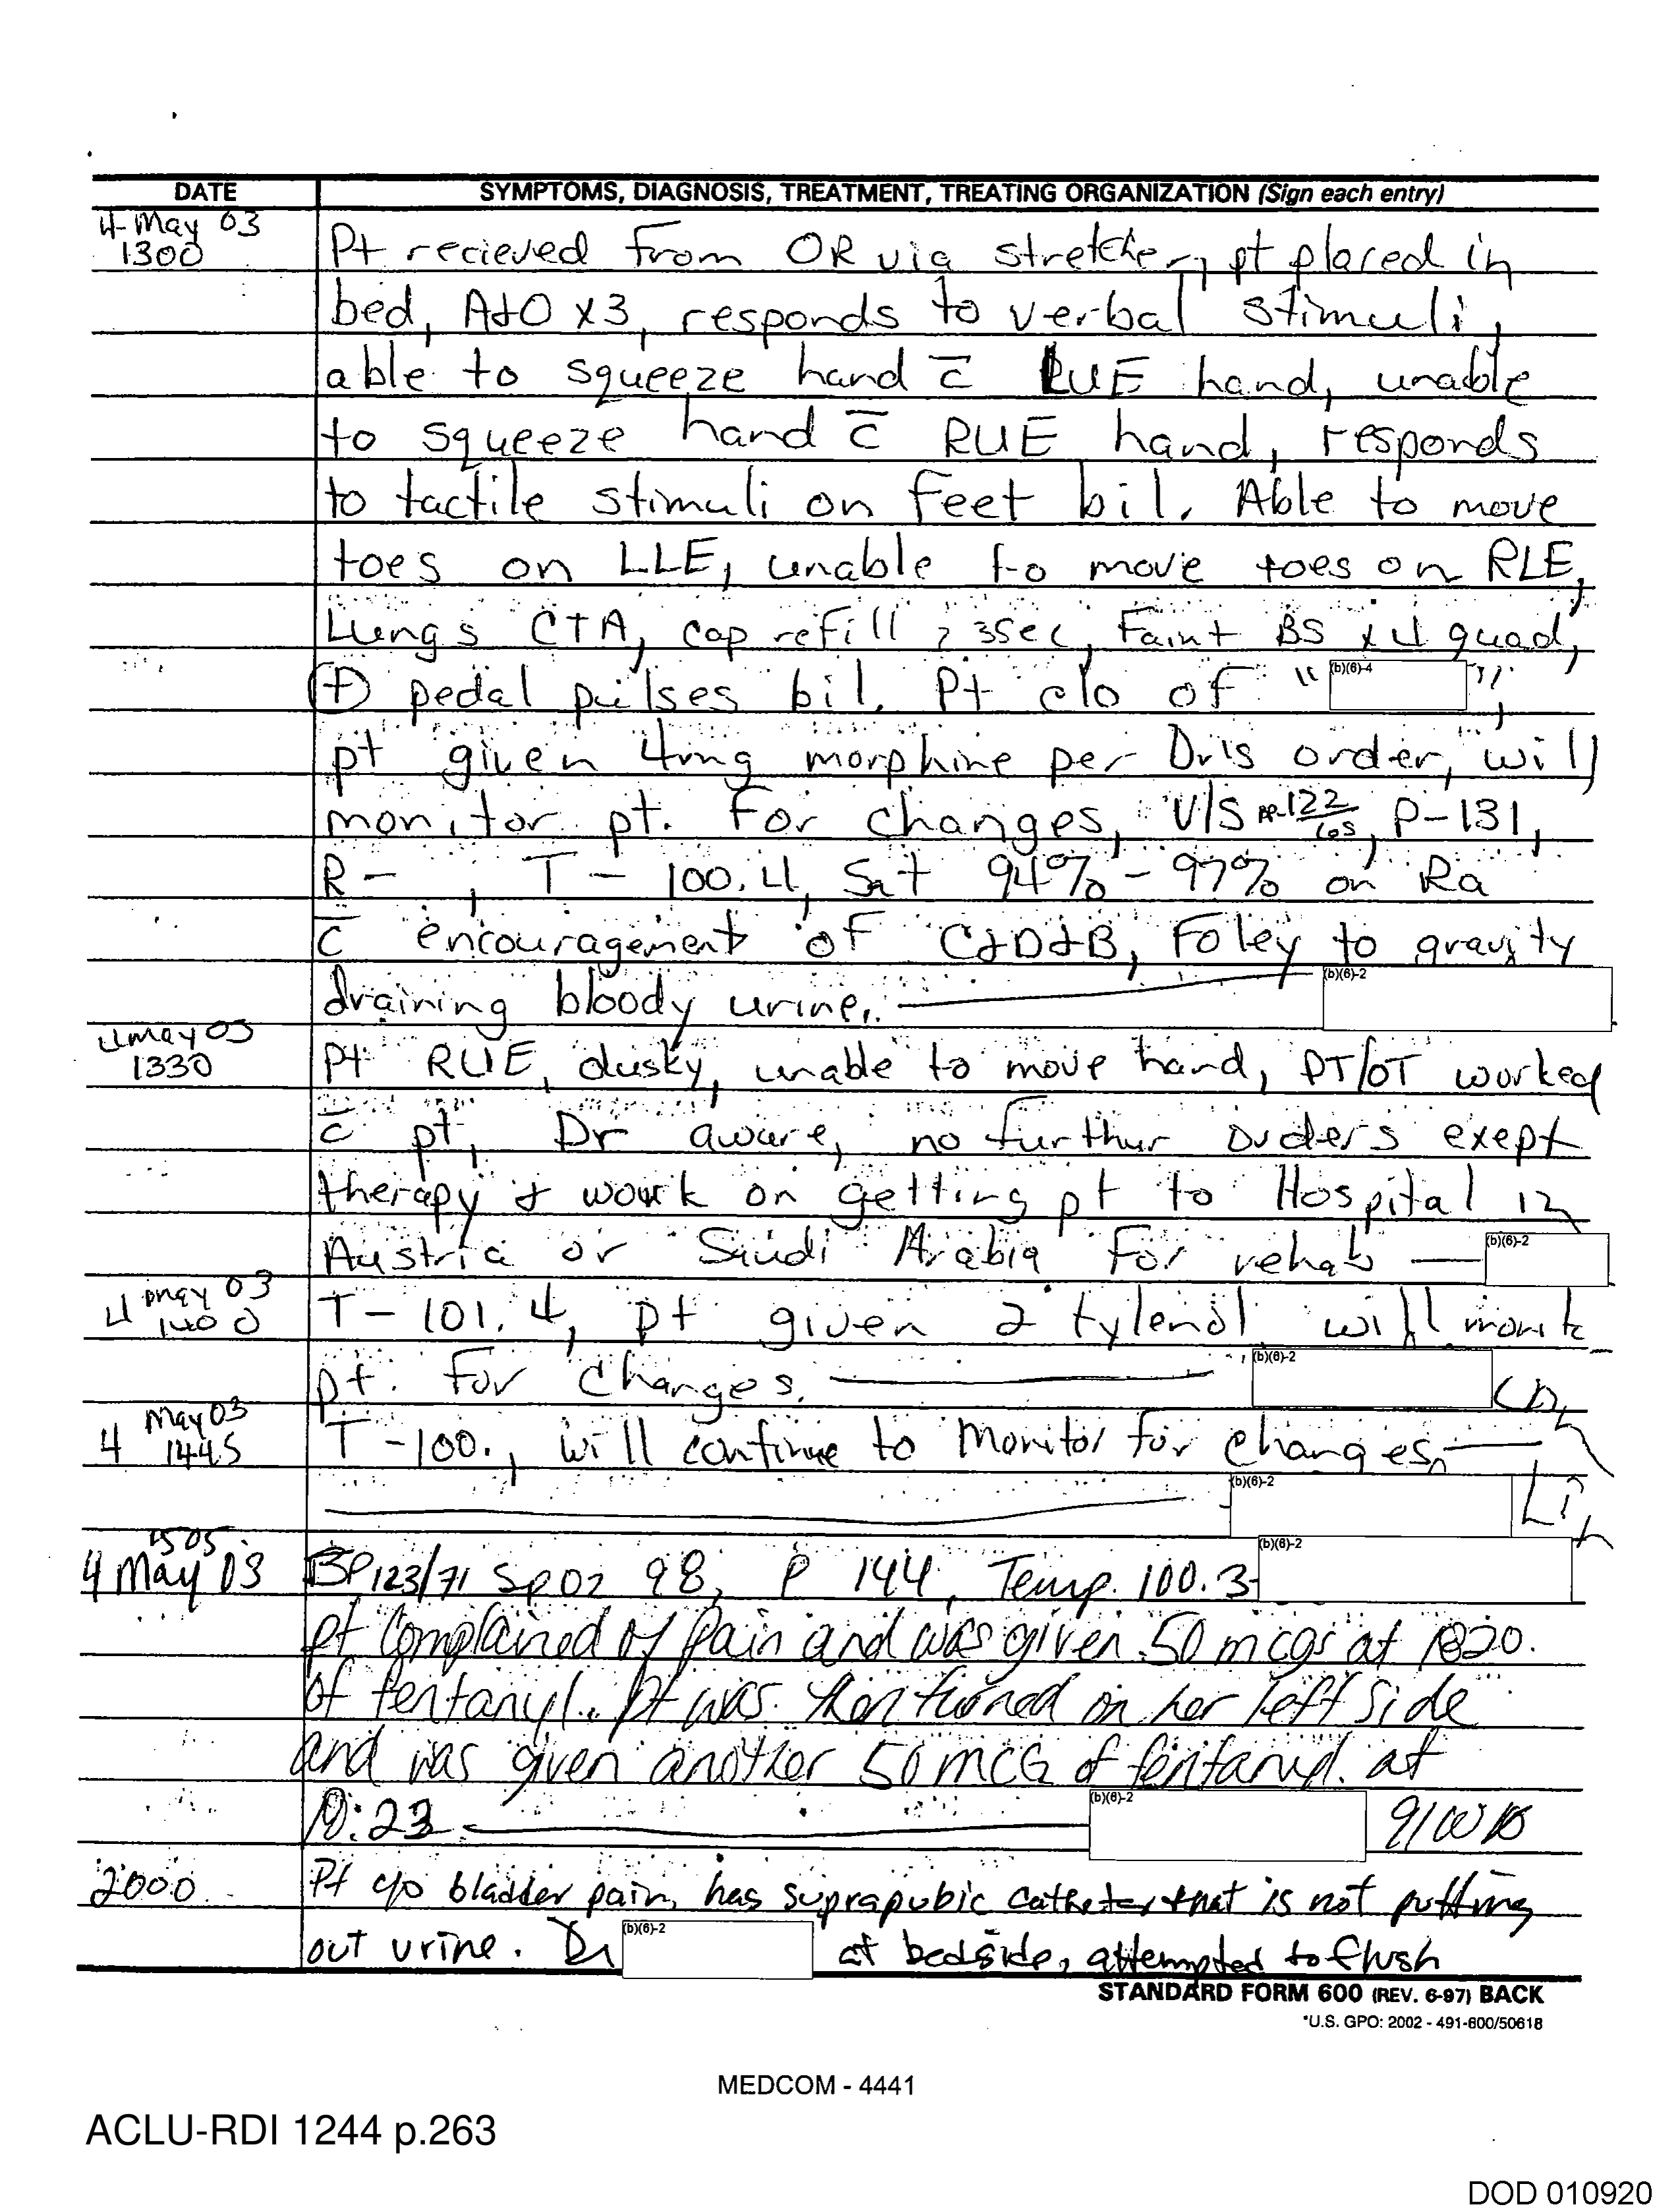 DATE SYMPTOMS, DIAGNOSIS, TREATMENT, TREATING ORGANIZATION (Sign each entry)
4 May 03
1300
Pt recieved from OR via stretcher, pt placed in
bed, A+O x3, responds to verbal stimuli,
able to squeeze hand c̄ LUE hand, unable
to squeeze hand c̄ RUE hand, responds
to tactile stimuli on feet bil. Able to move
toes on LLE, unable to move toes on RLE,
Lungs CTA, cap refill > 3sec, Faint BS x 4 quad,
(+) pedal pulses bil. Pt c/o of "(b)(6)-4",
pt given 4mg morphine per Dr's order, will
monitor pt. For changes, V/S BP-122/65, P-131,
R- , T- 100.4, Sat 94% - 97% on Ra
c̄ encouragement of C+D+B, Foley to gravity
draining bloody urine. (b)(6)-2
4 may 03
1330
Pt RUE, dusky, unable to move hand, PT/OT worked
c̄ pt, Dr aware, no furthur orders exept
therapy + work on getting pt to Hospital in
Austria or Saudi Arabia For rehab — (b)(6)-2
4 may 03
1400
T- 101.4, pt given 2 tylenol will monit
pt. For Changes. (b)(6)-2
4 May 03
1445
T-100., will continue to monitor for changes.
(b)(6)-2
1505
4 May 03
BP 123/71 SpO2 98, P 144, Temp. 100.3 (b)(6)-2
pt Complained of Pain and was given 50 mcgs at
of fentanyl. Pt was then turned on her left side
and was given another 50 mcG of fentanyl. at
(b)(6)-2 91W
2000
Pt c/o bladder pain, has suprapubic catheter that is not putting
out urine. Dr (b)(6)-2 at bedside, attempted to flush
STANDARD FORM 600 (REV. 6-97) BACK
*U.S. GPO: 2002 - 491-600/50618
MEDCOM - 4441
ACLU-RDI 1244 p.263
DOD 010920